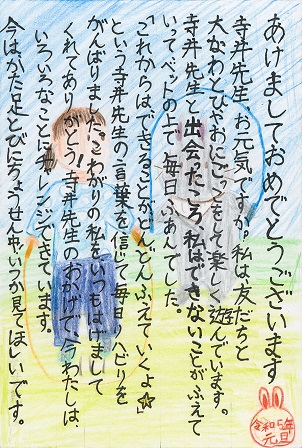 あけましておめでとうございます
寺井先生、お元気ですか?私は友だちと
大なわとびやおにごっこをして楽しく遊んでいます。
寺井先生と出会たころ、私はできないことがふえて
いってベットの上で毎日ふあんでした。
「これからはできることがどんどんふえていくよ☆」
という寺井先生の言葉を信じて毎日リハビリを
がんばりました。こわがりの私をいつもはげまして
くれてありがとう!寺井先生のおかげで今わたしは、
いろいろなことにチャレンジできています。
今はかた足とびにちょうせん中。いつか見てほしいです。
令和5年
元旦